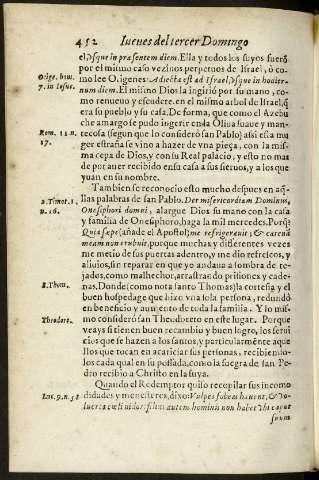 452 Iueues del tercer Domingo
el, vsque in præsentem diem. Ella y todos los suyos fuerõ
por el mismo caso vezinos perpetuos de Israel, ò co-
Orige. hom. mo lee Origenes: Adiecta est ad Israel, vsque in hodier-
7. in Iosue. num diem. El mismo Dios la ingirió por su mano, co-
mo renueuo y escudete, en el mismo arbol de Israel, q̃
era su pueblo y su casa. De forma, que como el Azebu
che amargo se pudo ingerir en la Oliua suaue y man-
Rom. 11. n. tecosa (segun que lo consideró san Pablo) assi esta mu
17. ger estraña se vino a hazer de vna pieça, con la mis-
ma cepa de Dios, y con su Real palacio, y esto no mas
de por auer recibido en su casa a sus sieruos, y a los que
yuan en su nombre.
Tambien se reconocio esto mucho despues en aq̃-
2. Timot. 1 llas palabras de san Pablo. Det misericordiam Dominus,
n. 16. Onesiphori domui, alargue Dios su mano con la casa
y familia de Onesiphoro, haga la mil mercedes. Porq̃
Quia sæpe (añade el Apostol) me refrigerauit, & catenã
meam non erubuit, porque muchas y diferentes vezes
me metio de sus puertas adentro, y me dio refrescos, y
aliuios, sin reparar en que yo andaua a sombra de te-
jados, como malhechor, arrastrando prisiones y cade-
S. Thom. nas. Donde (como nota santo Thomas) la cortesia y el
buen hospedage que hizo vna sola persona, redundó
en beneficio y aumento de toda la familia. Y lo mis-
Theodoro. mo consideró san Theodoreto en este lugar. Porque
veays si tienen buen recambio y buen logro, los serui
cios que se hazen a los santos, y particularmẽte aque
llos que tocan en acariciar sus personas, recibiendo-
los cada qual en su possada, como la suegra de san Pe-
dro recibio a Christo en la suya.
Quando el Redemptor quiso recopilar sus incomo
Luc. 9. n. 58 didades y menesteres, dixo: Vulpes foueas habent, & vo-
lucres cæli nidos: filius autem hominis non habet vbi caput
suum